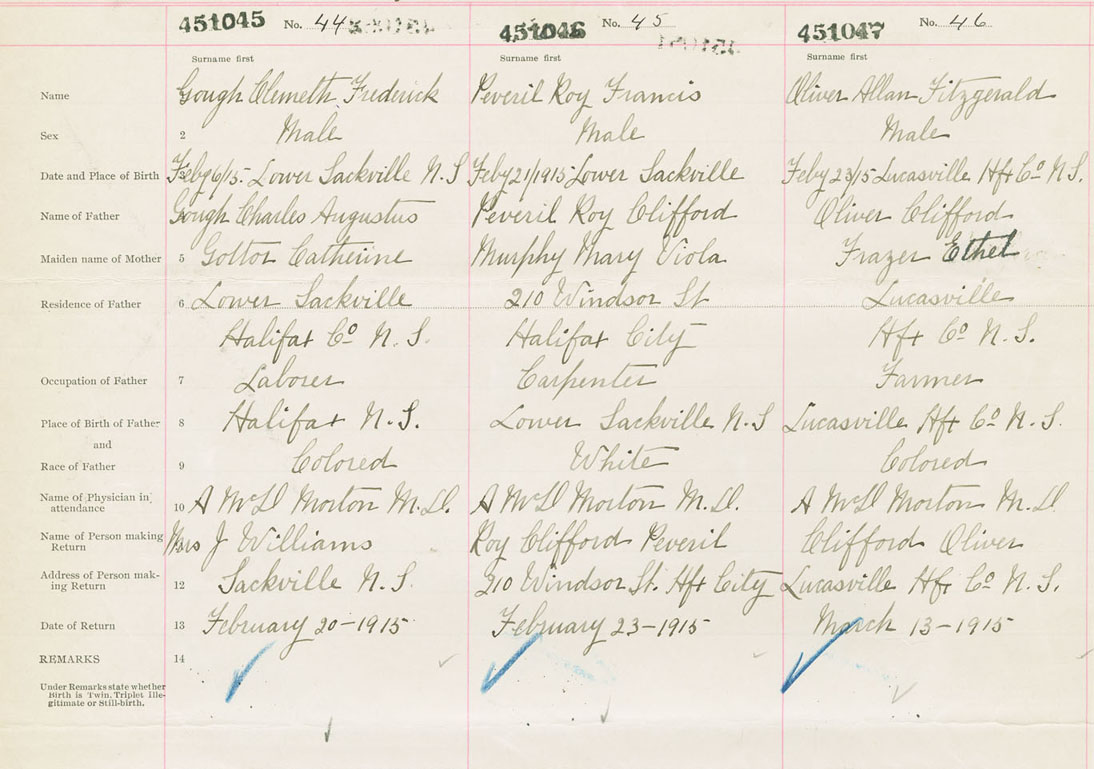 451045 No. 44 451046 No. 45 451047 No. 46
Surname first Surname first Surname first
Name Gough Clemeth Frederick Peveril Roy Francis Oliver Allan Fitzgerald
Sex 2 Male Male Male
Date and Place of Birth Feby 6/15- Lower Sackville N.S Feby 21/1915 Lower Sackville Feby 23/15 Lucasville Hfx Co N.S.
Name of Father Gough Charles Augustus Peveril Roy Clifford Oliver Clifford
Maiden name of Mother 5 Gottor Catherine Murphy Mary Viola Frazer Ethel
Residence of Father 6 Lower Sackville 210 Windsor St Lucasville
Halifax Co N.S. Halifax City Hfx Co N.S.
Occupation of Father 7 Laborer Carpenter Farmer
Place of Birth of Father 8 Halifax N.S. Lower Sackville N.S Lucasville Hfx Co N.S.
and
Race of Father 9 Colored White Colored
Name of Physician in attendance 10 A McD Morton M.D. A McD Morton M.D. A McD Morton M.D
Name of Person making Return Mrs J Williams Roy Clifford Peveril Clifford Oliver
Address of Person mak-
ing Return 12 Sackville N.S. 210 Windsor St. Hfx City Lucasville Hfx Co N.S.
Date of Return 13 February 20-1915 February 23-1915 March 13-1915
REMARKS 14
Under Remarks state whether
Birth is Twin, Triplet Ille-
gitimate or Still-birth.